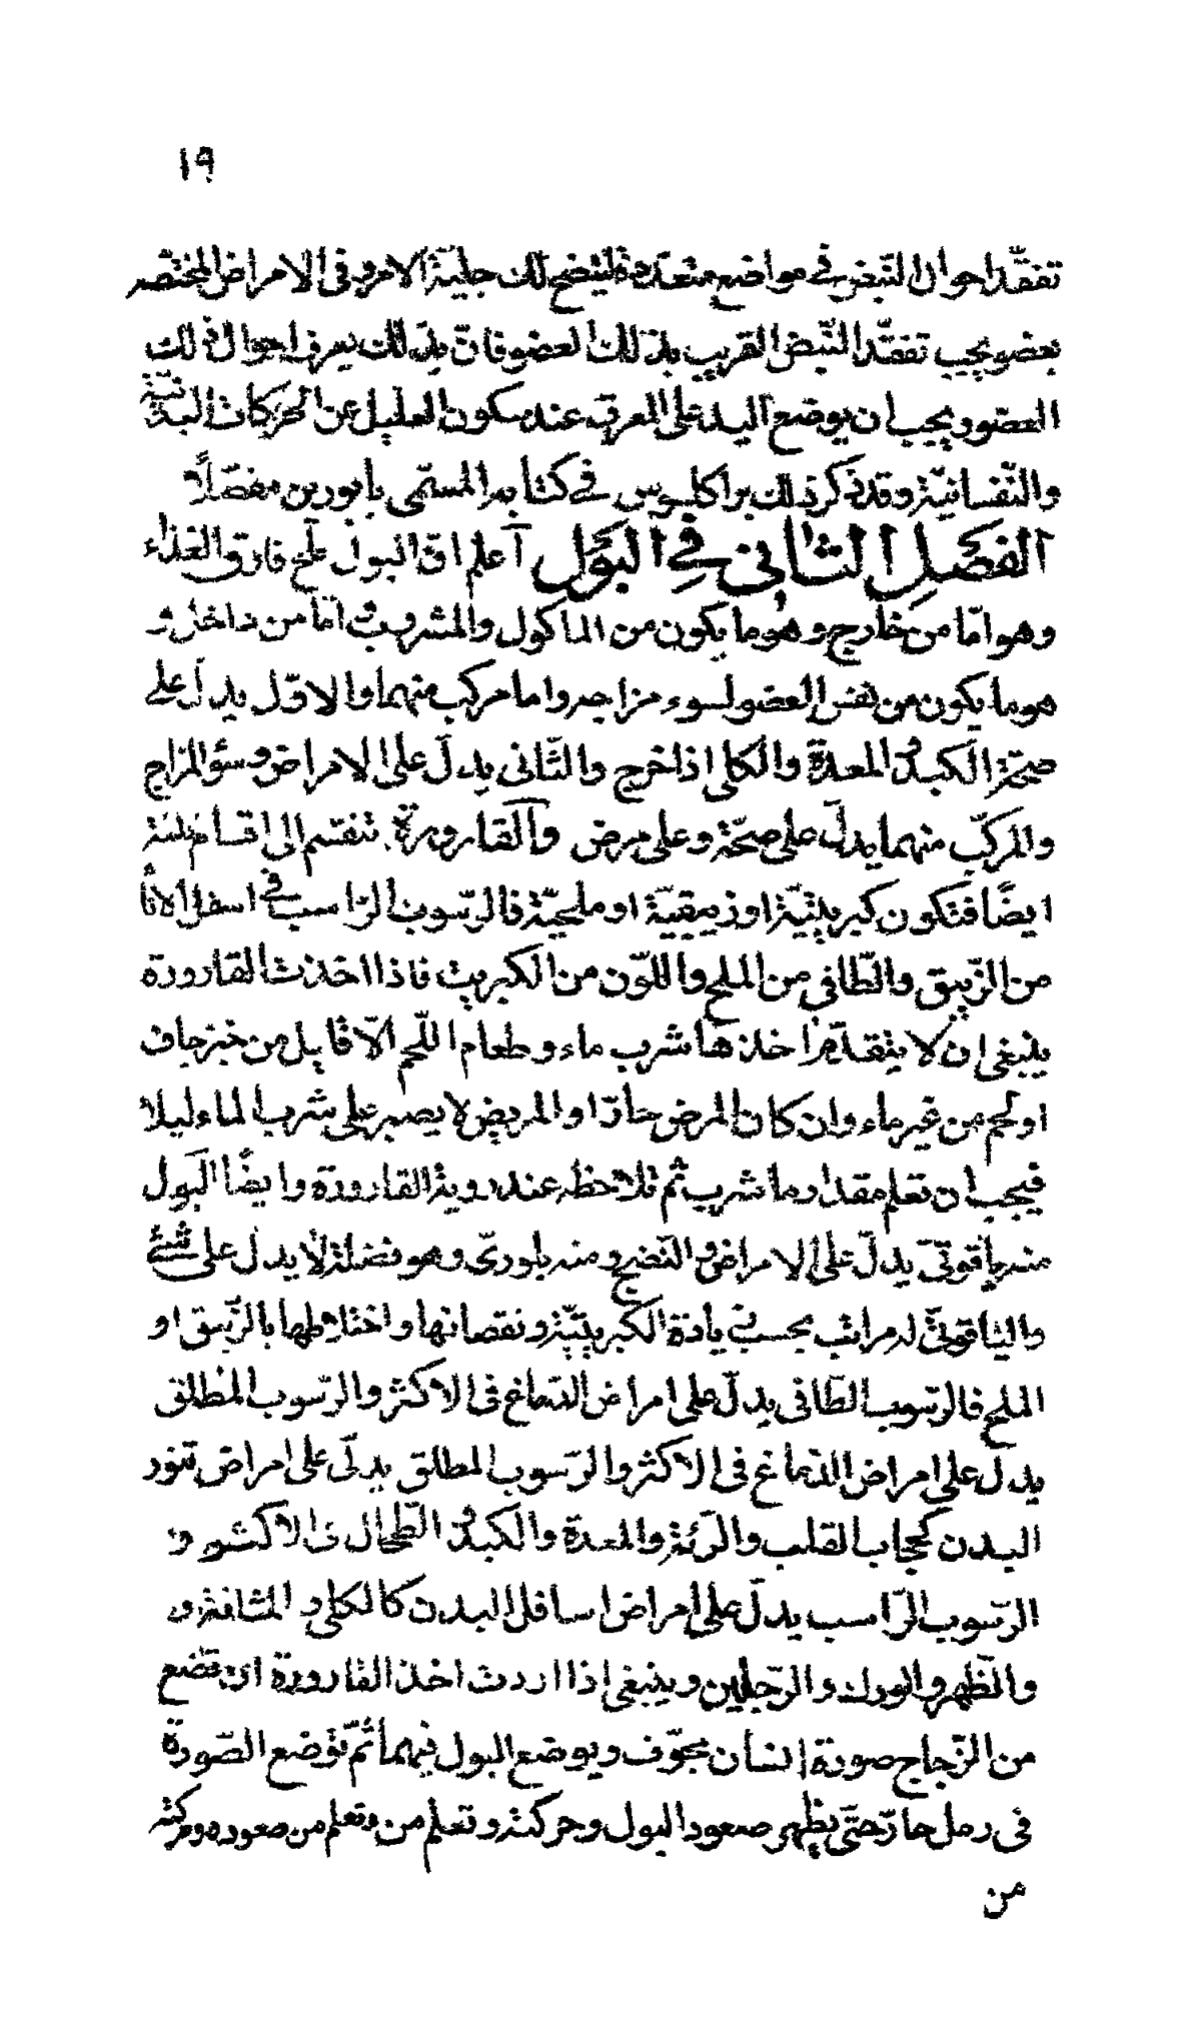 ١٩
تفقّد احوال النّبض في مواضع متعدّدة ليتّضح لك جليّة الامر وفى الامراض المختصّه
بعضو يجب تفقّد النّبض القريب بذلك العضو فانّ بذلك يعرف احوال ذلك
العضو ويجب ان يوضع اليد على العرق عند سكون العليل عن الحركات البدنيّة
والنّفسانيّة وقد ذكر ذلك براكلسوس في كتابه المسمّى بابورين مفصّلًا
الفصل الثانى في البول اعلم انّ البول ملح فارق الغذاء
وهو امّا من خارج وهو ما يكون من الماكول والمشروب وامّا من داخل و
هو ما يكون من نفس العضو لسوء مزاجه واما مركب منهما والاوّل يدلّ على
صحّة الكبد والمعدة والكلى اذا خرج والثّانى يدلّ على الامراض وسؤ المزاج
والمركّب منهما يدلّ على صحّة وعلى مرض والقارورة تنقسم الى اقسام ثلثة
ايضًا فتكون كبريتيّة او زيبقيّة او ملحيّة فالرّسوب الراسب في اسفل الانا
من الزّيبق والطّافى من الملح واللّون من الكبريت فاذا اخذت القارورة
ينبغى ان لا يتقدّم اخذها شرب ماء وطعام اللّهم الّا قليل من خبز جاف
او لحم من غير ماء وان كان المرض حادّا والمريض لا يصبر على شرب الماء ليلا
فيجب ان تعلم مقدار ما شرب ثم تلاحظه عند روية القارورة وايضًا البول
منه ياقوتىّ يدلّ على الامراض والنّضج ومنه بلورىّ وهو فضلة لا يدل على شئ
والياقوتىّ له مراتب بحسب زيادة الكبريتيّة ونقصانها واختلاطها بالزّيبق او
الملح فالرّسوب الطّافى يدلّ على امراض الدّماغ فى الاكثر والرّسوب المطلق
يدل على امراض الدّماغ فى الاكثر والرّسوب المطلق يدلّ على امراض تنور
البدن كحجاب القلب والرّئة والمعدة والكبد والطّحال فى الاكثر و
الرّسوب الرّاسب يدلّ على امراض اسافل البدن كالكلى والمثانة و
والظّهر والورك والرّجلين وينبغى اذا اردت اخذ القارورة ان تضع
من الزّجاج صورة انسان مجوّف ويوضع البول فيهما ثمّ توضع الصّورة
فى رمل حارّ حتّى يظهر صعود البول وحركته وتعلم من وتعلم من صعوده وحركته
من